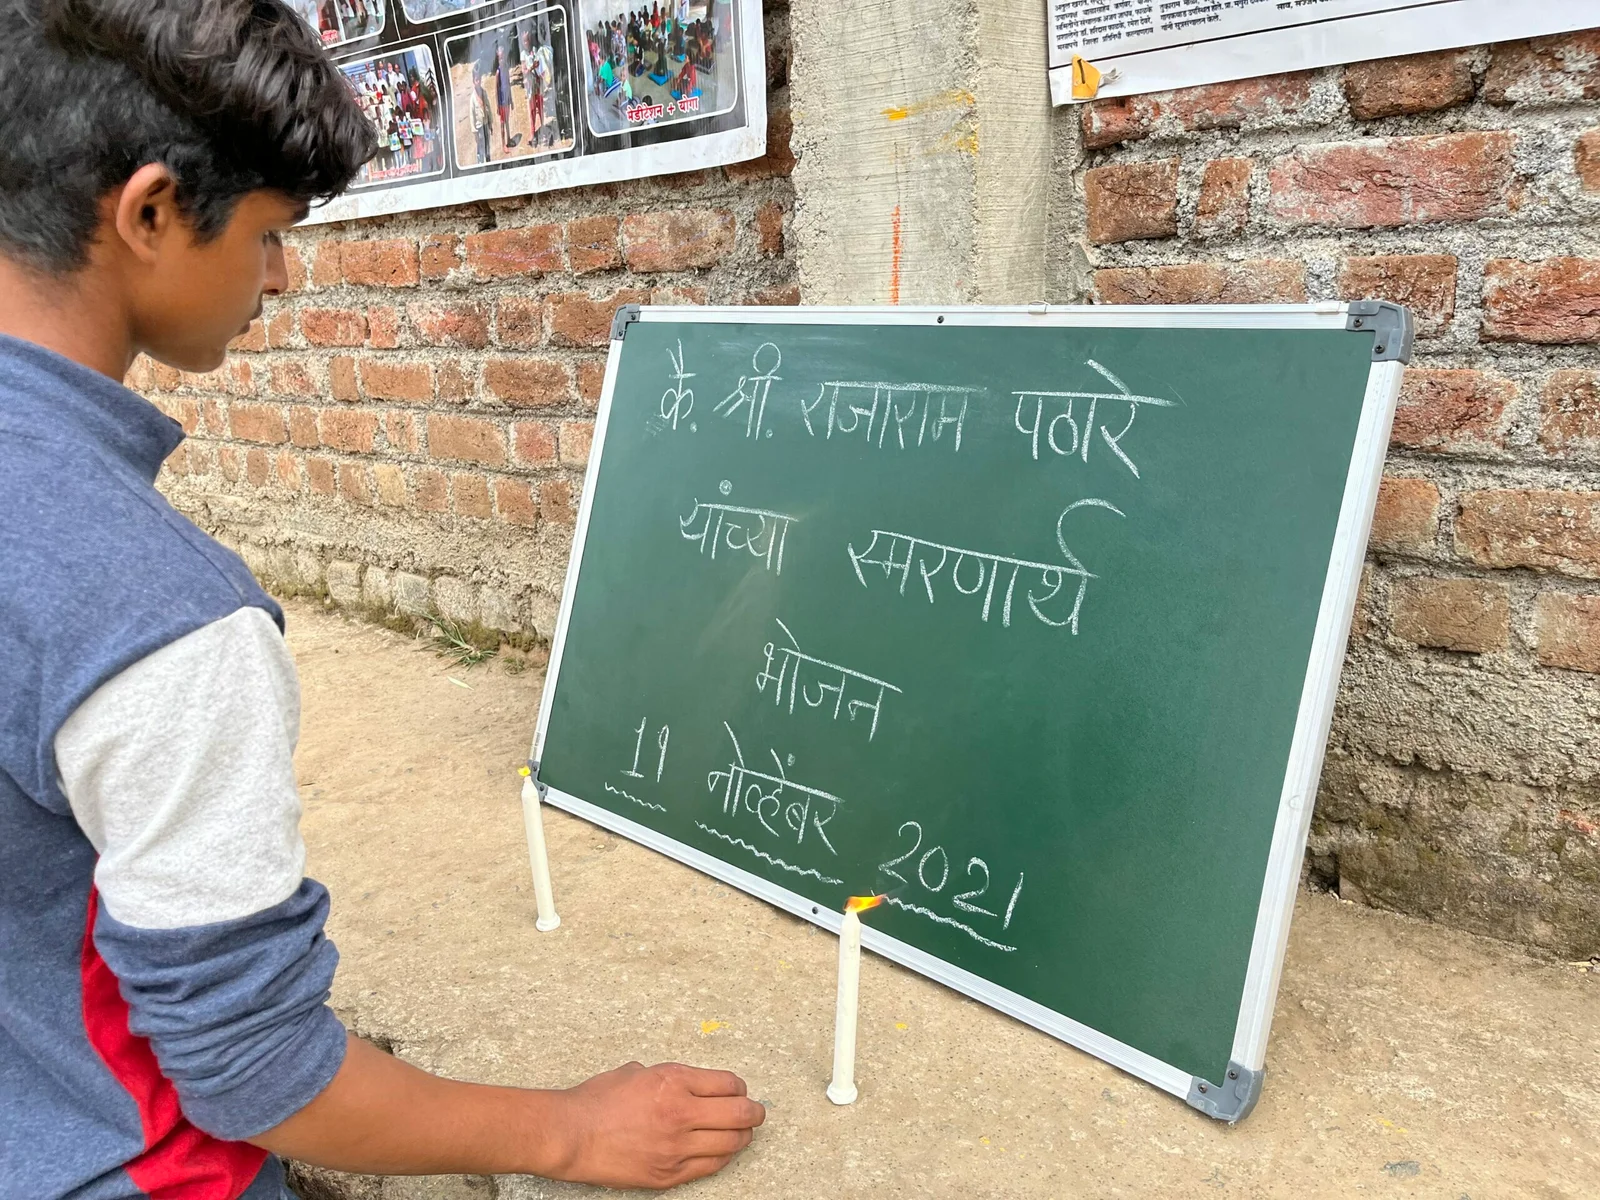 मेडीटेशन + योगा
कै. श्री. राजाराम पठारे
यांच्या स्मरणार्थ
भोजन
11 नोव्हेंबर 2021